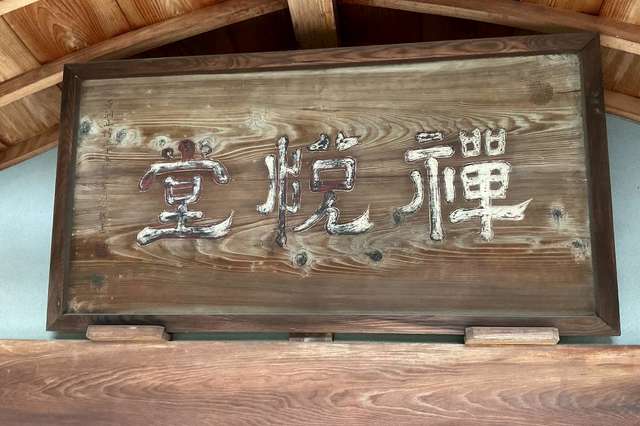 禪悅堂